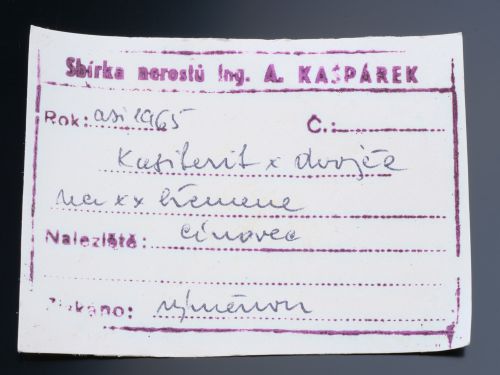 Sbírka nerostů Ing. A. KAŠPÁREK
Rok: asi 1965 Č.:
Kasiterit x dvojče
na xx křemene
Naleziště: Cínovec
Získáno: výměnou